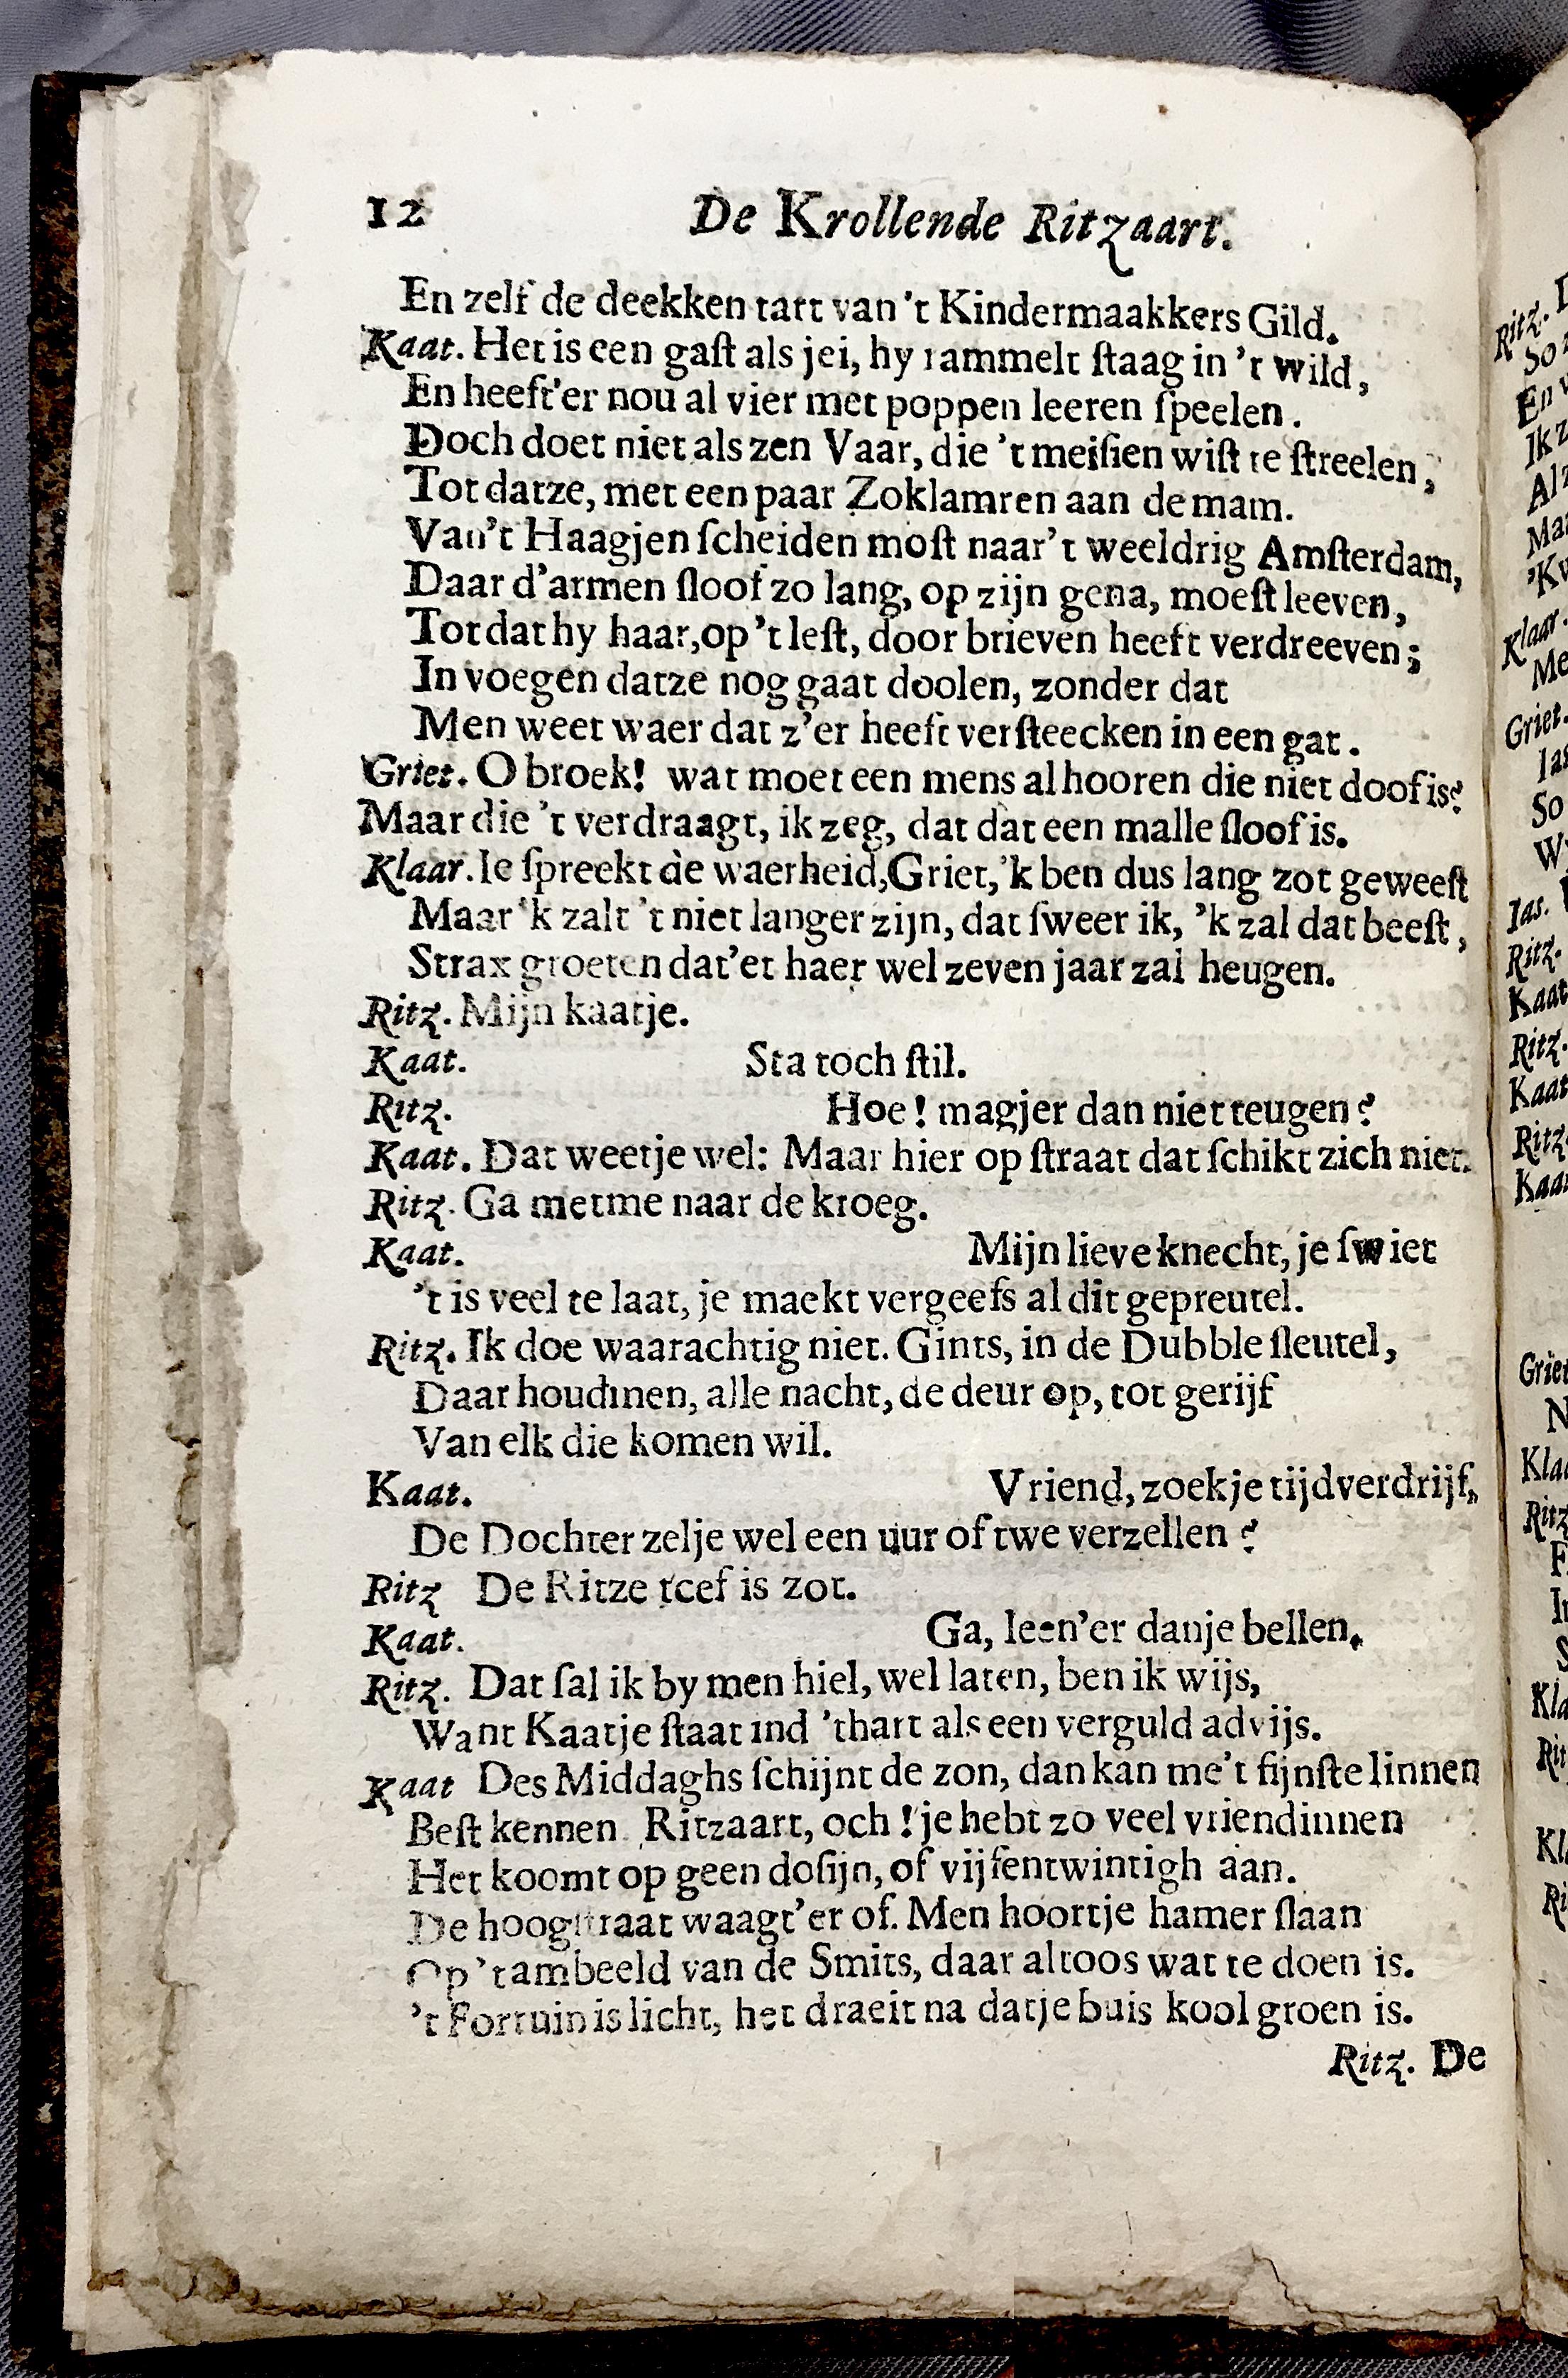 12 De Krollende Ritzaart.
En zelf de deekken tart van 't Kindermaakkers Gild.
Kaat. Het is een gaſt als jei, hy rammelt ſtaag in 't wild,
En heeft'er nou al vier met poppen leeren ſpeelen.
Doch doet niet als zen Vaar, die 't meiſien wiſt te ſtreelen,
Tot datze, met een paar Zoklamren aan de mam.
Van't Haagjen ſcheiden moſt naar't weeldrig Amſterdam,
Daar d'armen ſloof zo lang, op zijn gena, moeſt leeven,
Tot dat hy haar, op 't leſt, door brieven heeft verdreeven;
In voegen datze nog gaat doolen, zonder dat
Men weet waer dat z'er heeft verſteecken in een gat.
Griet. O broek! wat moet een mens al hooren die niet doof is?
Maar die 't verdraagt, ik zeg, dat dat een malle ſloof is.
Klaar. Ie ſpreekt de waerheid, Griet, 'k ben dus lang zot geweeſt
Maar 'k zalt 't niet langer zijn, dat ſweer ik, 'k zal dat beeſt,
Strax groeten dat'et haer wel zeven jaar zal heugen.
Ritz. Mijn kaatje.
Kaat. Sta toch ſtil.
Ritz. Hoe! magjer dan niet teugen?
Kaat. Dat weetje wel: Maar hier op ſtraat dat ſchikt zich niet.
Ritz. Ga metme naar de kroeg.
Kaat. Mijn lieve knecht, je ſwiet
't is veel te laat, je maekt vergeefs al dit gepreutel.
Ritz. Ik doe waarachtig niet. Gints, in de Dubble ſleutel,
Daar houdmen, alle nacht, de deur op, tot gerijf
Van elk die komen wil.
Kaat. Vriend, zoekje tijdverdrijf,
De Dochter zelje wel een uur of twe verzellen?
Ritz De Ritze teef is zot.
Kaat. Ga, leen'er danje bellen.
Ritz. Dat ſal ik by men hiel, wel laten, ben ik wijs,
Want Kaatje ſtaat ind 'thart als een verguld advijs.
Kaat Des Middaghs ſchijnt de zon, dan kan me't fijnſte linnen
Beſt kennen Ritzaart, och! je hebt zo veel vriendinnen
Het koomt op geen doſijn, of vijfentwintigh aan.
De hoogſtraat waagt'er of. Men hoortje hamer ſlaan
Op 't ambeeld van de Smits, daar altoos wat te doen is.
't Fortuin is licht, het draeit na datje buis kool groen is.
Ritz. De